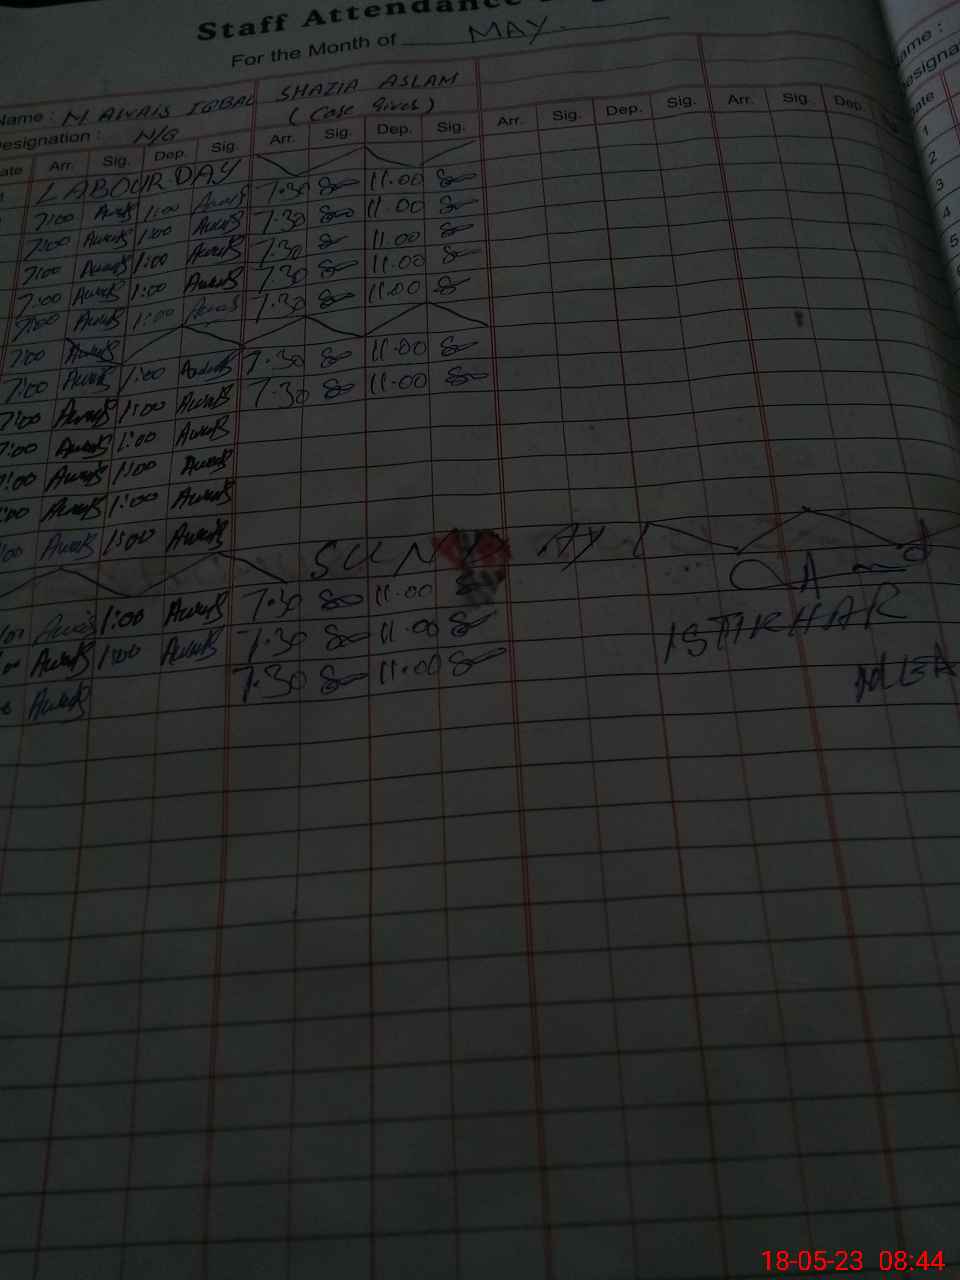 Staff Attendance
For the Month of MAY
Name : M AWAIS IQBAL SHAZIA ASLAM
Designation : N/Q (Case Giver)
Date Arr. Sig. Dep. Sig. Arr. Sig. Dep. Sig. Arr. Sig. Dep. Sig. Arr. Sig. Dep.
LABOUR DAY
7:00 Awais 1:00 Awais 7.30 11.00
7:00 Awais 1:00 Awais 7.30 11.00
7:00 Awais 1:00 Awais 7.30 11.00
7:00 Awais 1:00 Awais 7.30 11.00
7:00 Awais 1:00 Awais 7.30 11.00
7:00 Awais
7:00 Awais 1:00 Awais 7.30 11.00
7:00 Awais 1:00 Awais 7.30 11.00
7:00 Awais 1:00 Awais
7:00 Awais 1:00 Awais
:00 Awais 1:00 Awais
:00 Awais 1:00 Awais
SUNDAY
Awais 1:00 Awais 7.30 11.00
Awais 1:00 Awais 7.30 11.00
Awais 7.30 11.00
ame :
esigna
ate
1
2
3
4
5
18-05-23 08:44